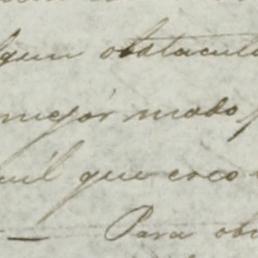 algun obstaculo
mejor modo p
util que esco
— Para obs